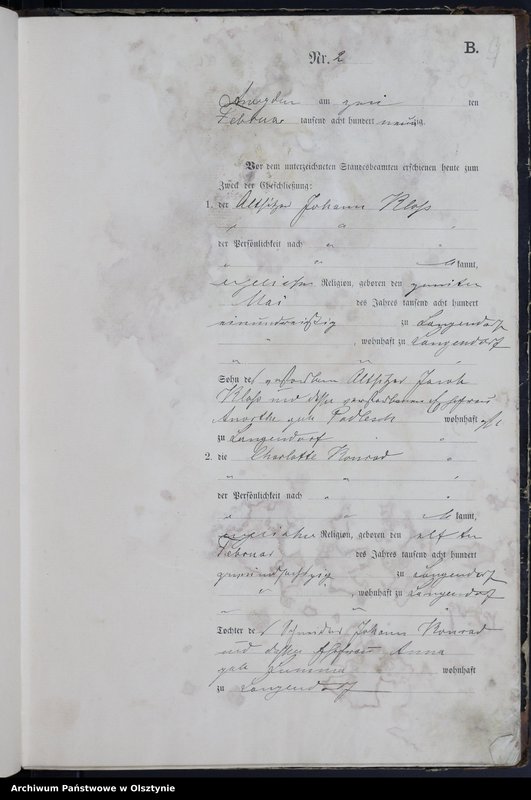 B.
Nr. 2
am zwei ten
Februar tausend acht hundert neunzig.
Vor dem unterzeichneten Standesbeamten erschienen heute zum
Zweck der Eheschließung:
1. der Altsitzer Johann Kloß
der Persönlichkeit nach
kannt,
Religion, geboren den zweiten
Mai des Jahres tausend acht hundert
einunddreißig zu Langendorf
, wohnhaft zu Langendorf
Sohn des verstorbenen Altsitzer Jacob
Kloß und dessen verstorbenen Ehefrau
geb. wohnhaft
zu Langendorf
2. die Charlotte Konrad
der Persönlichkeit nach
kannt,
Religion, geboren den elften
Februar des Jahres tausend acht hundert
zu Langendorf
, wohnhaft zu Langendorf
Tochter des Schneider Johann Konrad
und dessen Ehefrau Anna
geb. wohnhaft
zu Langendorf
Archiwum Państwowe w Olsztynie